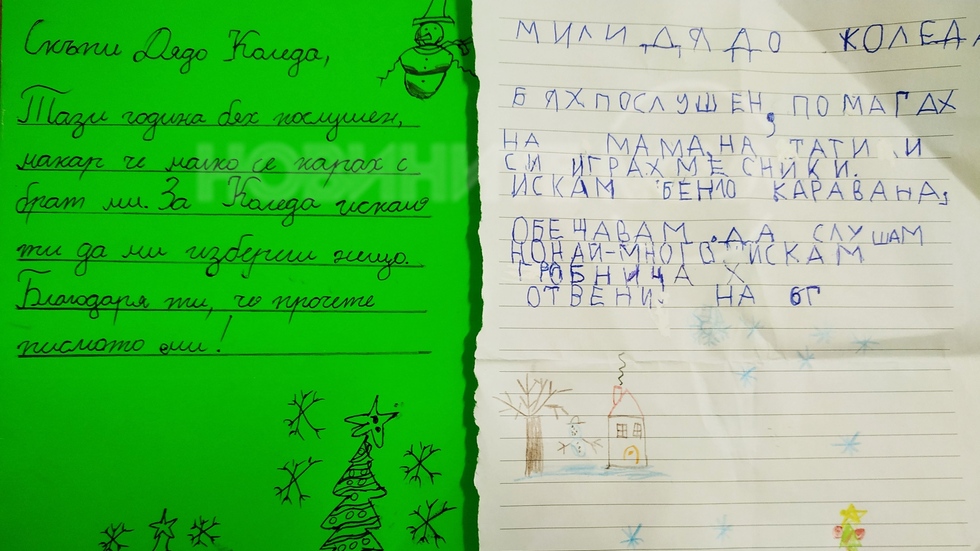 Скъпи Дядо Коледа,
Тази година бях послушен,
макар че малко се карах с
брат ми. За Коледа искам
ти да ми избереш нещо.
Благодаря ти, че прочете
писмото ми!
МИЛИ ДЯДО КОЛЕДА
БЯХ ПОСЛУШЕН, ПОМАГАХ
НА МАМА, НА ТАТИ И
СИ ИГРАХМЕ СНИКИ.
ИСКАМ КАРАВАНА,
ОБЕЩАВАМ ДА СЛУШАМ
НО НАЙ-МНОГО ИСКАМ
ГРОБНИЦА Х
ОТ ВЕНИ. НА 6Г
НОВИНИ